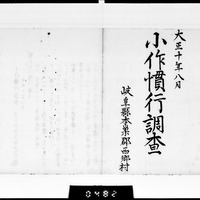 大正十年八月
小作慣行調査
岐阜縣本巣郡西郷村
0482